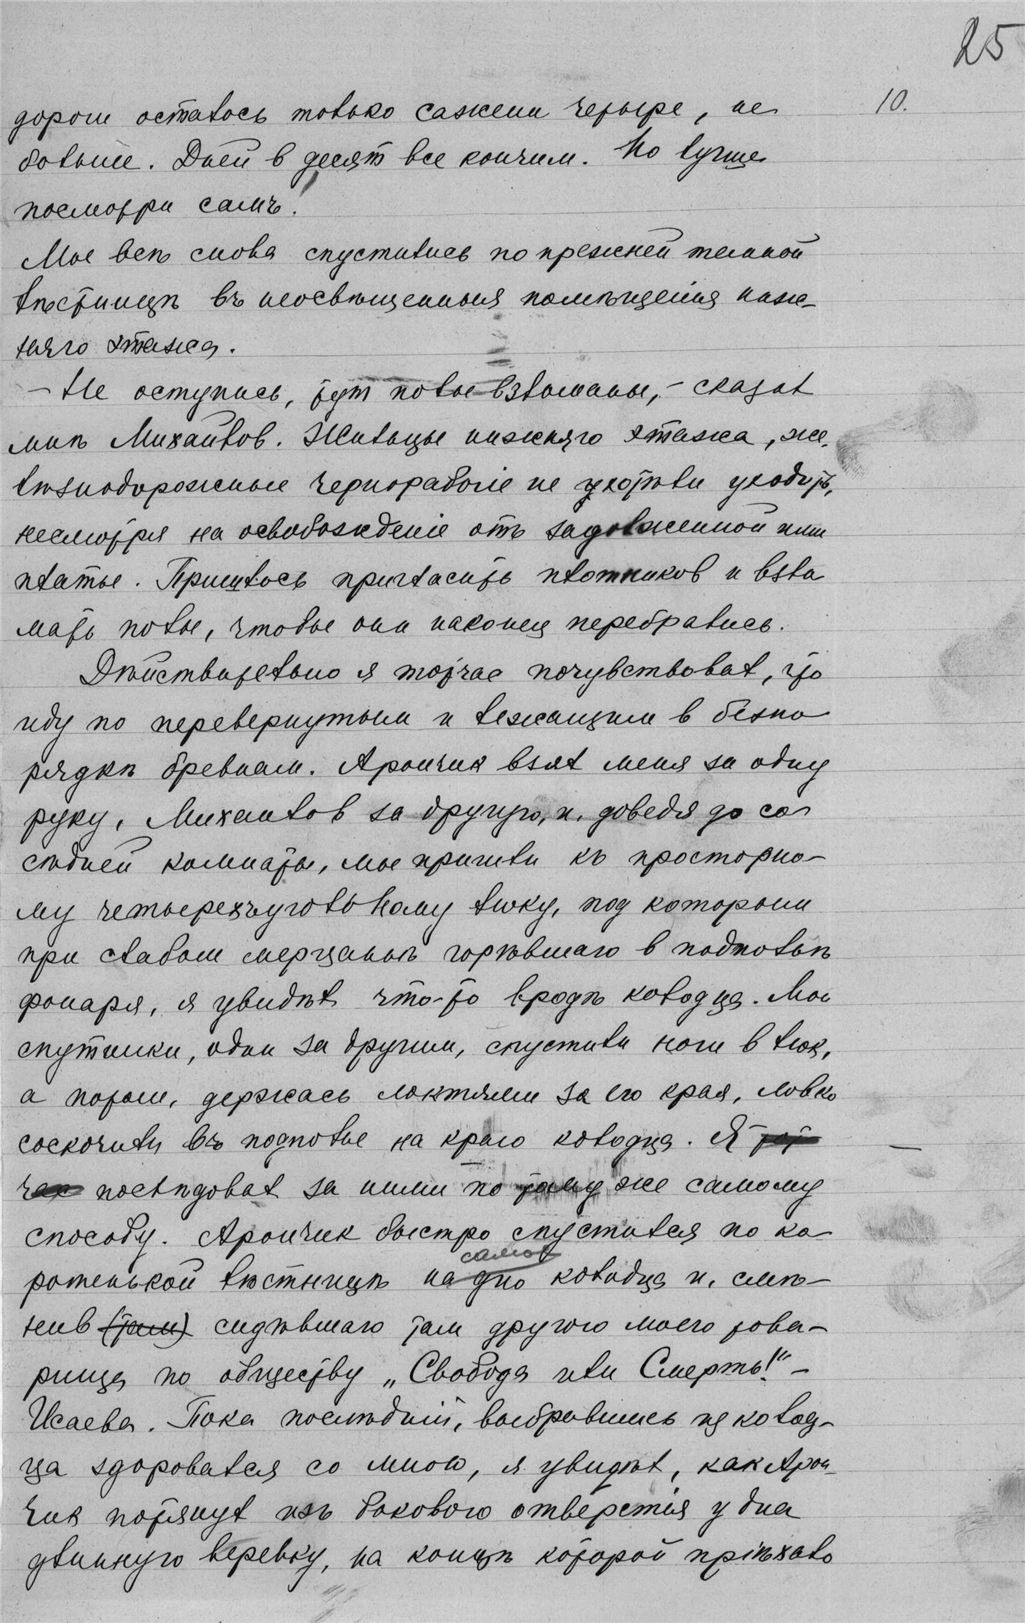 25
10.
дороги осталось только сажени четыре, не
больше. Дней в десят все кончим. Но лучше
посмотри самъ!
Мы всѣ снова спустились по прежней темной
лѣстницѣ въ неосвѣщенныя помѣщенія ниж-
няго этажа.
— Не оступись, тут полы взломаны, — сказал
мнѣ Михайлов. Жильцы нижняго этажа, же-
лѣзнодорожные чернорабочіе не хотѣли уходить,
несмотря на освобожденіе отъ задолженной ими
платы. Пришлось пригласить плотников и взла
мать полы, чтобы они наконец перебрались.
Дѣйствительно я тотчас почувствовал, что
иду по перевернутым и лежащим в безпо
рядкѣ бревнам. Арончик взял меня за одну
руку, Михайлов за другую, и, доведя до со
сѣдней комнаты, мы пришли къ просторно-
му четырехъугольному люку, под которым
при слабом мерцаніи горѣвшаго в подпольѣ
фонаря, я увидѣл что-то вродѣ колодца. Мои
спутники, один за другим, спустили ноги в люк,
а потом, держась локтями за его края, ловко
соскочили въ подполье на краю колодца. Я тот
час послѣдовал за ними по тому же самому
способу. Арончик быстро спустился по ко
ротенькой лѣстницѣ на самое дно колодца и, смѣ-
нив (там) сидѣвшаго там другого моего това-
рища по обществу „Свобода или Смерть!“ —
Исаева. Пока послѣдній, выбравшись из колод-
ца здоровался со мною, я увидѣл, как Арон-
чик потянул изъ бокового отверстія у дна
длинную веревку, на концѣ которой пріѣхало